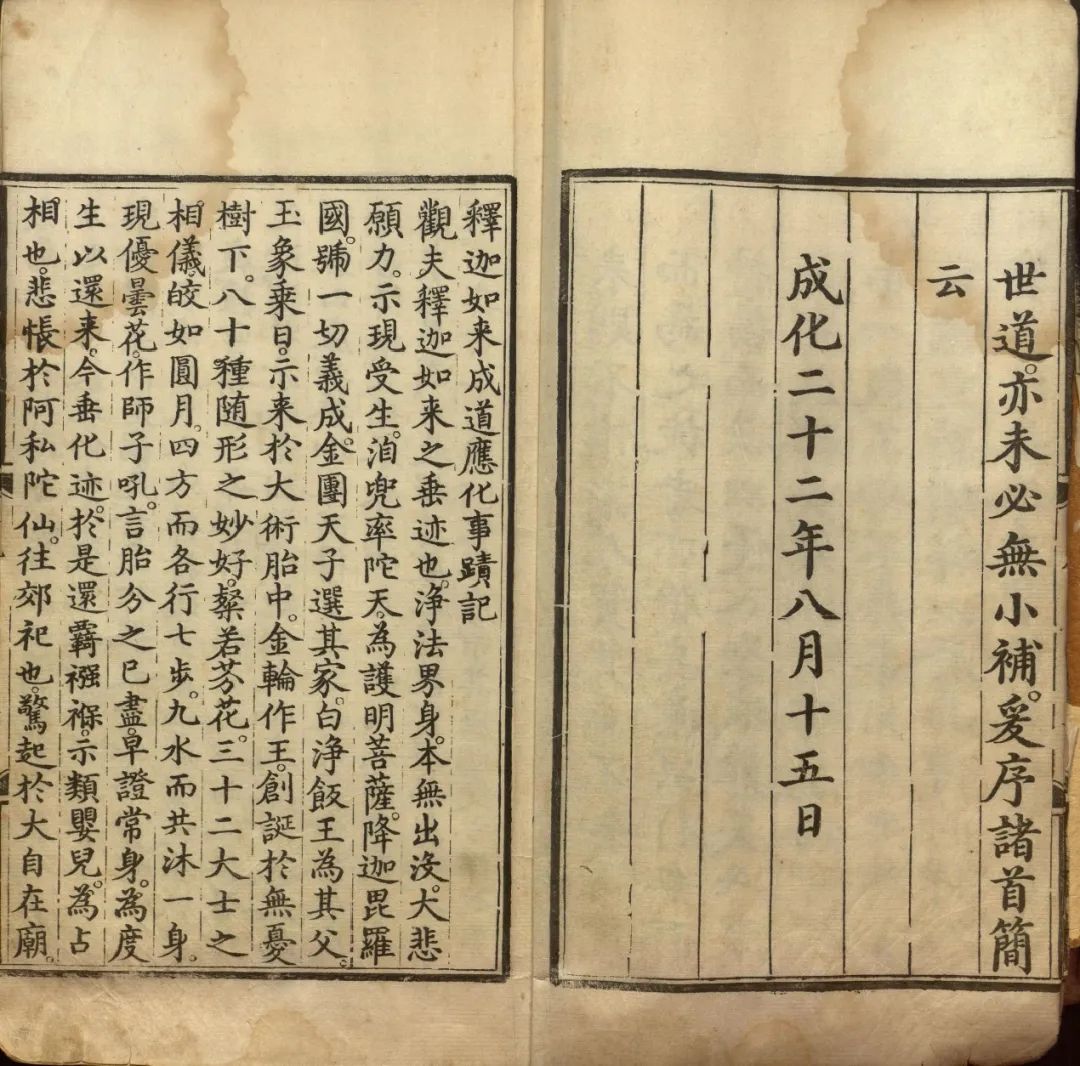 世道亦未必無小補爰序諸首簡
云
成化二十二年八月十五日
釋迦如来成道應化事蹟記
觀夫釋迦如来之垂迹也。浄法界身。本無出沒。大悲
願力。示現受生。洎兜率陀天。為護明菩薩。降迦毘羅
國。號一切義成。金團天子選其家。白浄飯王為其父。
玉象乗日。示来於大術胎中。金輪作王。創誕於無憂
樹下。八十種随形之妙好。粲若芬花。三十二大士之
相儀。皎如圓月。四方而各行七步。九水而共沐一身。
現優曇花。作師子吼。言胎分之已盡。早證常身。為度
生以還来。今垂化迹。於是還覊襁褓。示類嬰兒。為占
相也。悲悵於阿私陀仙。往郊祀也。驚起於大自在廟。